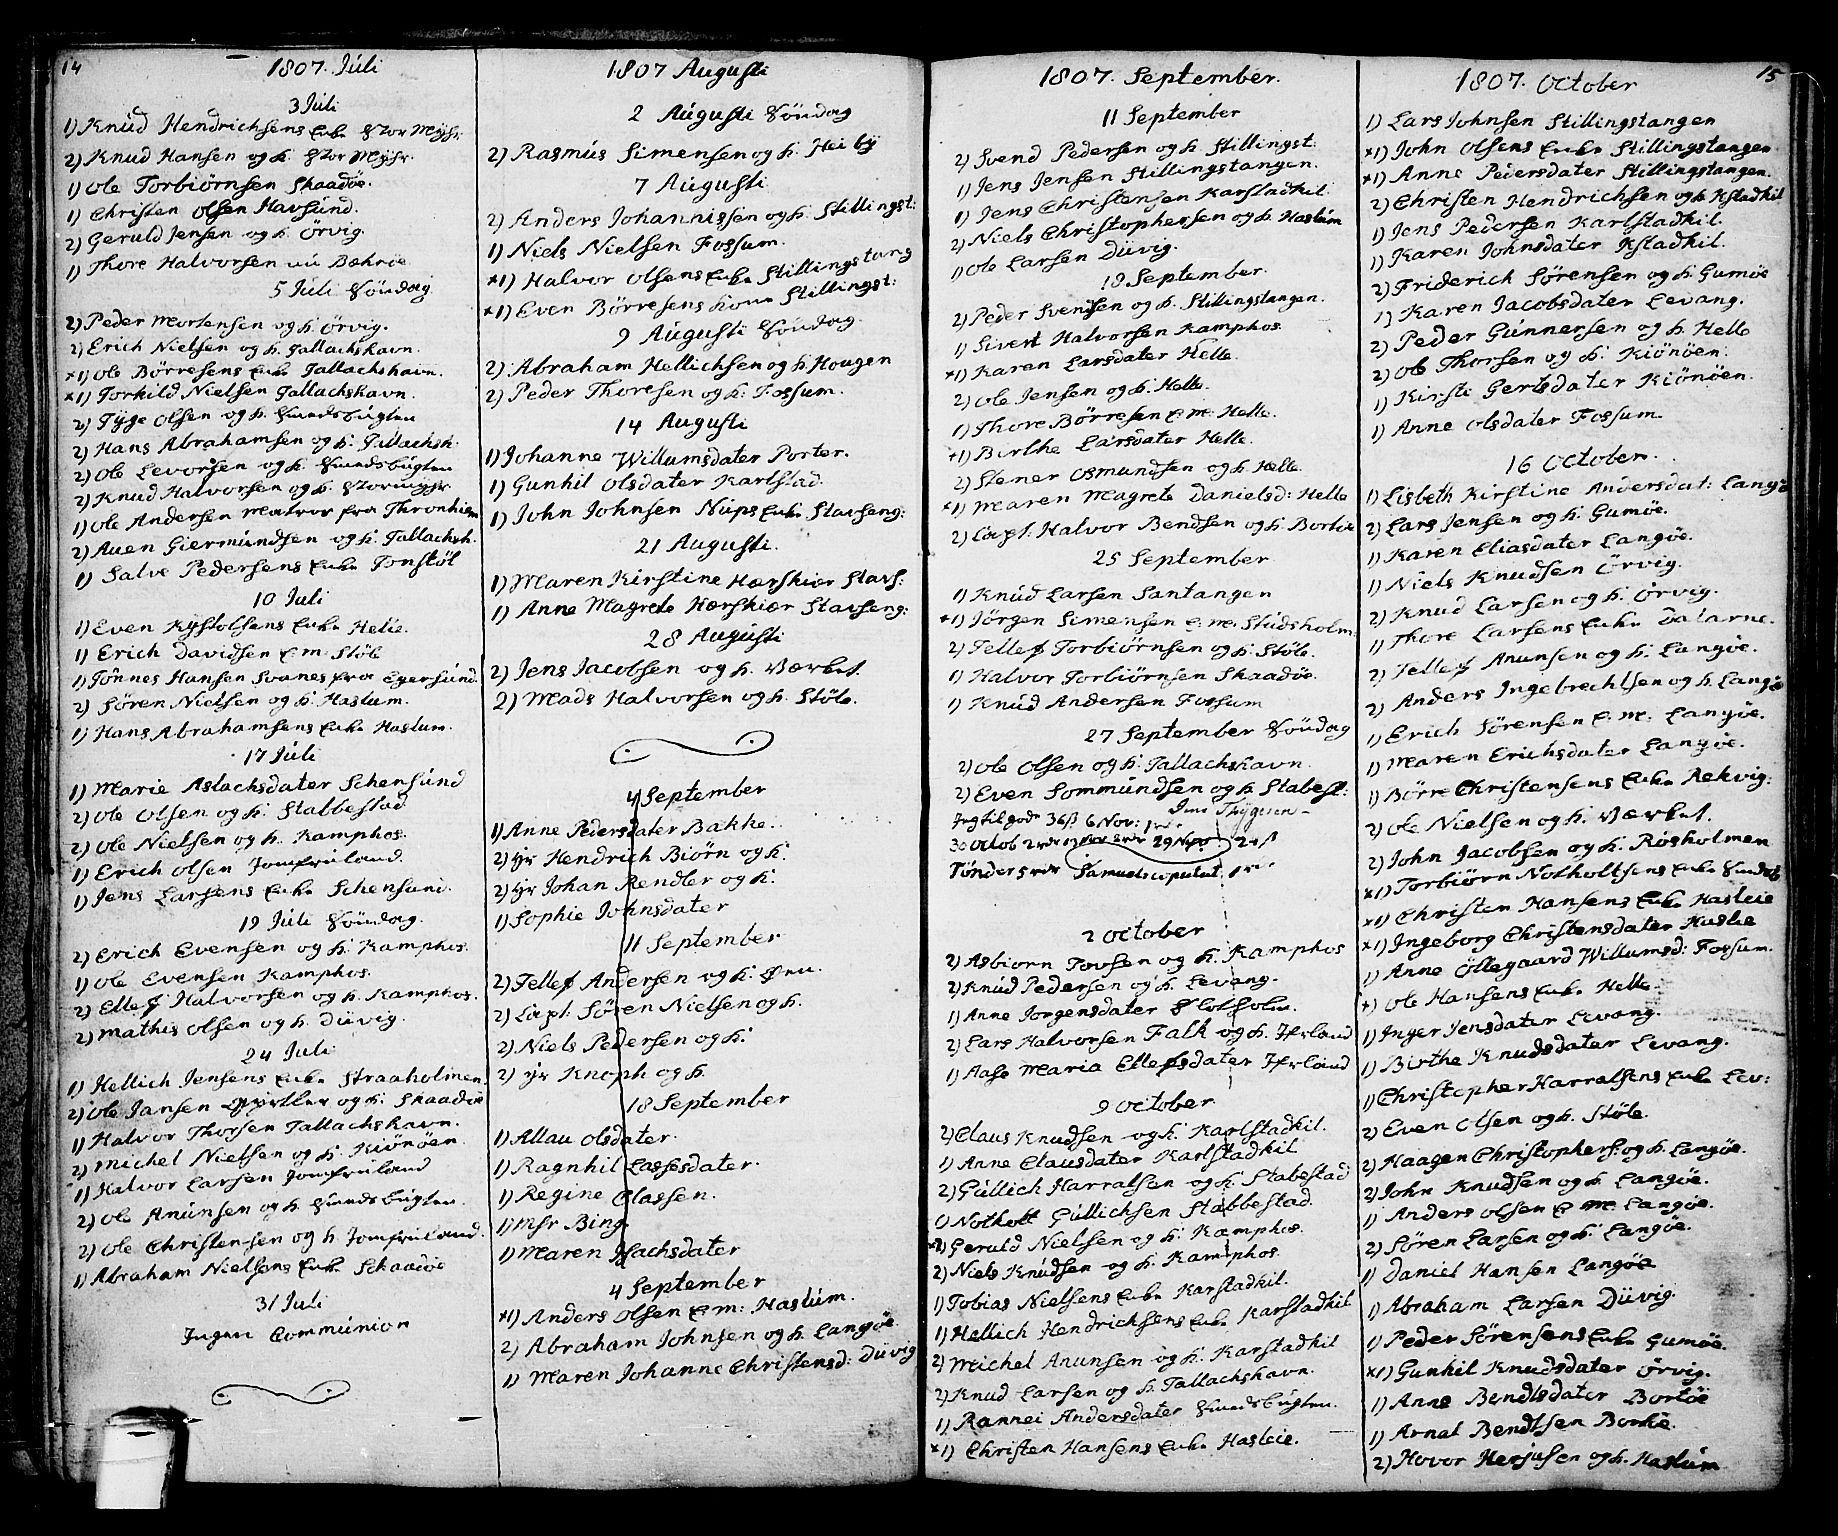 14
1807. Júli
3 Júli
1) Knúd Hendrichsens Enke Stor Mÿhr:
2) Knud Hansen og h. Stor Mÿhr.
1) Ole Torbiörnsen Skaadöe.
1) Christen Olsen Havsúnd.
2) Geruld Jensen og h. Örvig.
1) Thore Halvorsen
5 Júli Söndag
2) Peder Mortensen og h. Örvig.
2) Erich Nielsen og h. Tallachshavn.
*1) Ole Börresens Enke Tallachshavn.
*1) Torkild Nielsen Tallachshavn.
2) Tÿge Olsen og h. Sundsbugten
2) Hans Abrahamsen og h. Tallachsh.
2) Ole Levorsen og h. Sundsbúgten
2) Knúd Halvorsen og h. Stormÿhr.
1) Ole Andersen Matros fra Thronhiem
2) Auen Giermúndsen og h. Tallachsh.
1) Salve Pedersens Enke Tonstöl
10 Juli
1) Even Kÿstolsens Enke Helle.
1) Erich Davidsen E. M. Stöle
1) Tönnes Hansen Svanes fra Egersúnd.
2) Sören Nielsen og h. Haslum.
1) Hans Abrahamsens Enke Haslum.
17 Júli
1) Marie Aslachsdater Schensúnd
2) Ole Olsen og h. Stabbestad
2) Ole Nielsen og h. Kamphos.
1) Erich Olsen Jomfruland.
1) Jens Larsens Enke Schensund.
19 Júli Söndag.
2) Erich Evensen og h. Kamphos.
1) Ole Evensen Kamphos.
2) Ellef Halvorsen og h. Kamphos.
2) Mathis Olsen og h. Dúvig.
24 Juli
1) Hellich Jensens Enke Straaholmen.
2) Ole Jansen og h. Skaadöe
1) Halvor Thorsen Tallachshavn.
2) Michel Nielsen og h. Kiönöen.
1) Halvor Larsen Jomfruland
2) Ole Anúnsen og h. Sundsbúgten.
2) Ole Christensen og h. Jomfruland.
1) Abraham Nielsens Enke Skaadöe
31 Juli
Ingen Communion
1807 Augusti
2 Augusti Söndag
2) Rasmús Simensen og h. Heibÿ
7 Augusti
2) Anders Johannissen og h. Stillingst:
1) Niels Nielsen Fossum.
*1) Halvor Olsens Enke Stillingstang
*1) Even Börresens Kone Stillingst:
9 Augusti Söndag.
2) Abraham Hellichsen og h. Hougen
2) Peder Thoresen og h. Fossum.
14 Augusti
1) Johanne Willumsdater Porter.
1) Gunhil Olsdater Karlstad.
1) John Johnsen Núps Enke Stavseng:
21 Augusti.
1) Maren Kirstine Hærskiær Stavs:
1) Anne Magrete Hærskiær Stavseng:
28 Augústi
2) Jens Jacobsen og h. Værket.
2) Mads Halvorsen og h. Stöle.
4 September
1) Anne Pedersdater Bakke.
2) Hr Hendrich Biörn og h.
2) Hr Johan Rendler og h.
1) Sophie Johnsdater
11 September
2) Tellef Andersen og h. Öen.
2) Capt. Sören Nielsen og h.
2) Niels Pedersen og h.
2) Hr Knoph og h.
18 September
1) Allau Olsdater.
1) Ragnhil Lassesdater.
1) Regine Classen.
1) Msr Bing.
1) Maren Isachsdater
4 September
*1) Anders Olsen E. M. Haslúm.
2) Abraham Johnsen og h. Langöe.
1) Maren Johanne Christensd: Dúvig
1807. September.
11 September
2) Svend Pedersen og h. Stillingst:
1) Jens Jensen Stillingstangen.
1) Jens Christensen Karstadkil.
2) Niels Christophersen og h. Haslúm
1) Ole Larsen Dúvig.
18 September.
2) Peder Svensen og h. Stillingstangen.
1) Sivert Halvorsen Kamphos
*1) Karen Larsdater Helle.
2) Ole Jensen og h. Helle.
1) Thore Börresen E. M. Helle.
*1) Birthe Larsdater Helle.
2) Stener Osmundsen og h. Helle.
*1) Maren Magrete Danielsd: Helle
2) Capt. Halvor Bendsen og h. Bortöe
25 September
1) Knúd Larsen Santangen
*1) Jörgen Simensen E. M. Studsholm.
2) Tellef Torbiörnsen og h. Stöle.
1) Halvor Torbiörnsen Skaadöe.
1) Knúd Andersen Fossum
27 September Söndag
2) Ole Olsen og h. Tallachshavn.
2) Even Sommúndsen og h. Stabest:
Jens Thÿgesen
Ing til gode 36ß 6 Nov:
30 Octob 2 rdr 29 Nov
Tönder 5 rdr Samuels copulat. 1 rdr
2 October
2) Asbiorn Tovsen og h. Kamphos
2) Knúd Pedersen og h. Levang.
1) Anne Jorgensdater Slotholm.
2) Lars Halvorsen Falk og h. Jfrland
1) Aase Maria Ellefsdater Jfrland
9 October
2) Claus Knudsen og h. Karlstadkil.
1) Anne Clausdater Karlstadkil
2) Gúllich Harralsen og h. Stabestad
1) Notholt Gúllichsen Stabbestad.
*2) Geruld Nielsen og h. Kamphos.
2) Niels Knúdsen og h. Kamphos.
1) Tobias Nielsens Enke Karstadkil.
1) Hellich Hendrichsens Enke Karstadkil
2) Michel Anunsen og h. Karstadkil
2) Knud Larsen og h. Tallachshavn.
1) Rannei Andersdater Sundsbúgten.
*1) Christen Hansens Enke Hasleie.
15
1807. October
1) Lars Johnsen Stillingstangen
*1) John Olsens Enke Stillingstangen.
*1) Anne Pedersdater Stillingstangen.
2) Christen Hendrichsen og h. Kstadkil
1) Jens Pedersen Karlstadkil.
1) Karen Johnsdater Kstadkil.
2) Friderich Sörensen og h. Gumöe
1) Karen Jacobsdater Levang.
2) Peder Gúnnersen og h. Helle
2) Ole Thorsen og h. Kiönöen.
1) Kirsti Gertsdater Kiönöen.
1) Anne Olsdater Fossum.
16 October.
1) Lisbeth Kirstine Andersdat: Langöe
2) Lars Jensen og h. Gumöe.
1) Karen Eliasdater Langöe.
1) Niels Knudsen Örvig.
2) Knud Larsen og h. Örvig.
1) Thore Larsens Enke Dalarne.
2) Tellef Anunsen og h. Langöe.
2) Anders Ingebrechtsen og h. Langöe
1) Erich Sörensen E. M. Langöe.
1) Maren Erichsdater Langöe.
1) Börre Christensens Enke Rekvig:
2) Ole Nielsen og h. Værket.
2) John Jacobsen og h. Rösholmen
*1) Torbiörn Notholtsens Enke Sundsb
*1) Christen Hansens Enke Hasleie
*1) Ingeborg Christensdater Haslie
1) Anne Öllegaard Willumsd: Fossum.
*) Ole Hansens Enke Helle.
1) Inger Jensdater Levang.
1) Birthe Knudsdater Levang.
1) Christopher Harralsens Enke Lev:
2) Even Olsen og h. Stöle.
2) Haagen Christophers: og h. Langöe.
2) John Knudsen og h. Langöe.
1) Anders Olsen E. M. Langöe.
2) Sören Larsen og h. Langöe
1) Daniel Hansen Langöe
1) Abraham Larsen Dúvig.
1) Peder Sörensens Enke Gumöe.
*1) Gunhil Knudsdater Örvig.
1) Anne Bendtsdater Bortöe
1) Arnat Bendtsen Bortöe.
2) Hovor Herjusen og h. Haslúm